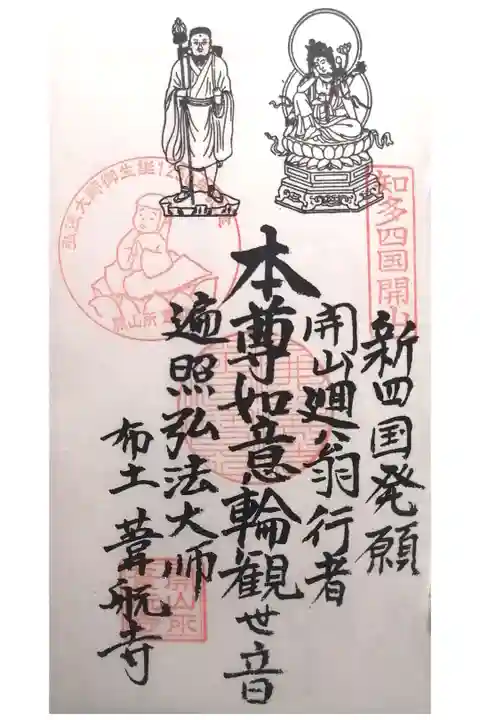 知多四国開山
新四国発願
開山廻八翁行者
本尊如意輪観世音
遍照弘法大師
布土 葦航寺
弘法大師御生誕12
開山所